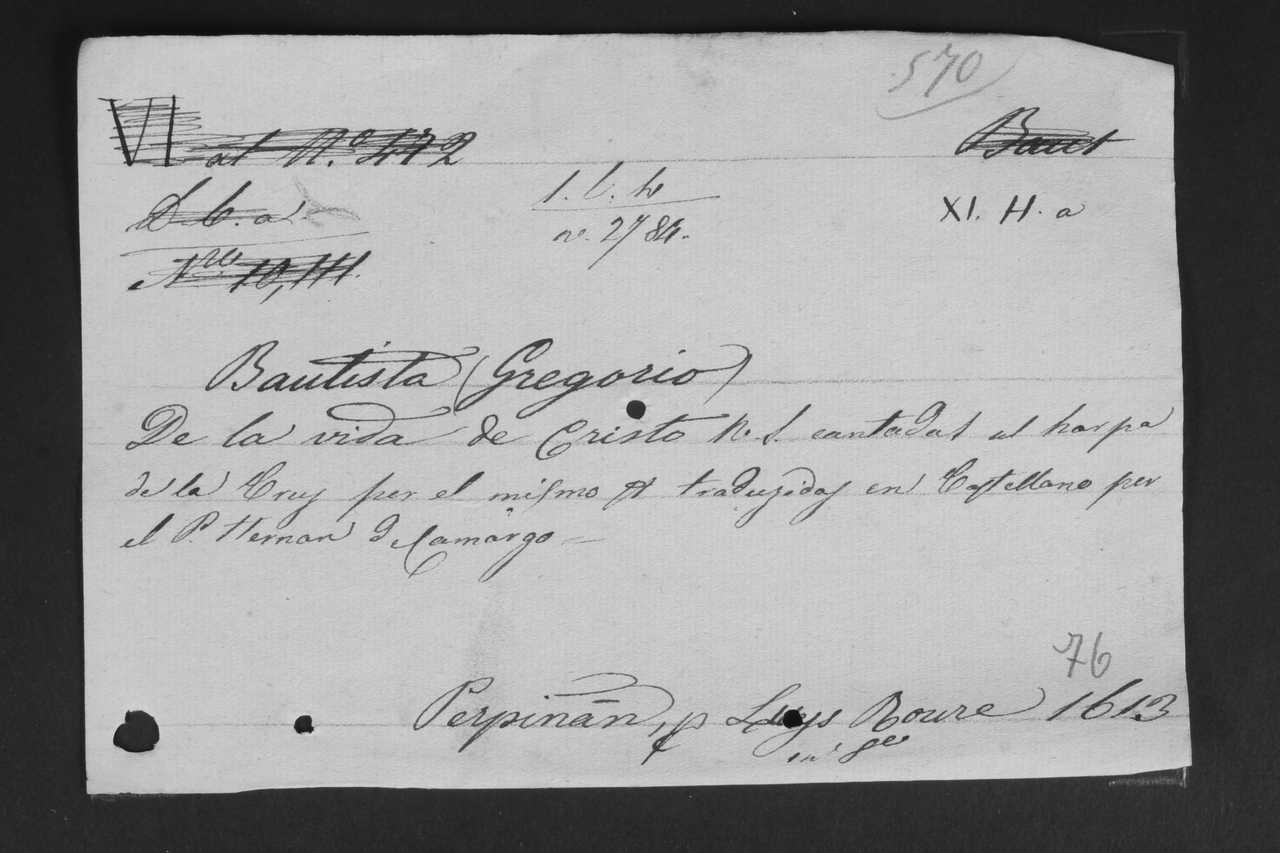 570
VI at N.º 472 Baut
1. C. h
XI. H. a
nº. 2784.
Nro 10,111.
Bautista (Gregorio)
De la vida de Cristo N. S. cantadas al harpa
de la Cruz per el mismo A traduzidas en Castellano per
el P. Hernan de Camargo
76
Perpinán, p Luys Roure 1613
en 8vo